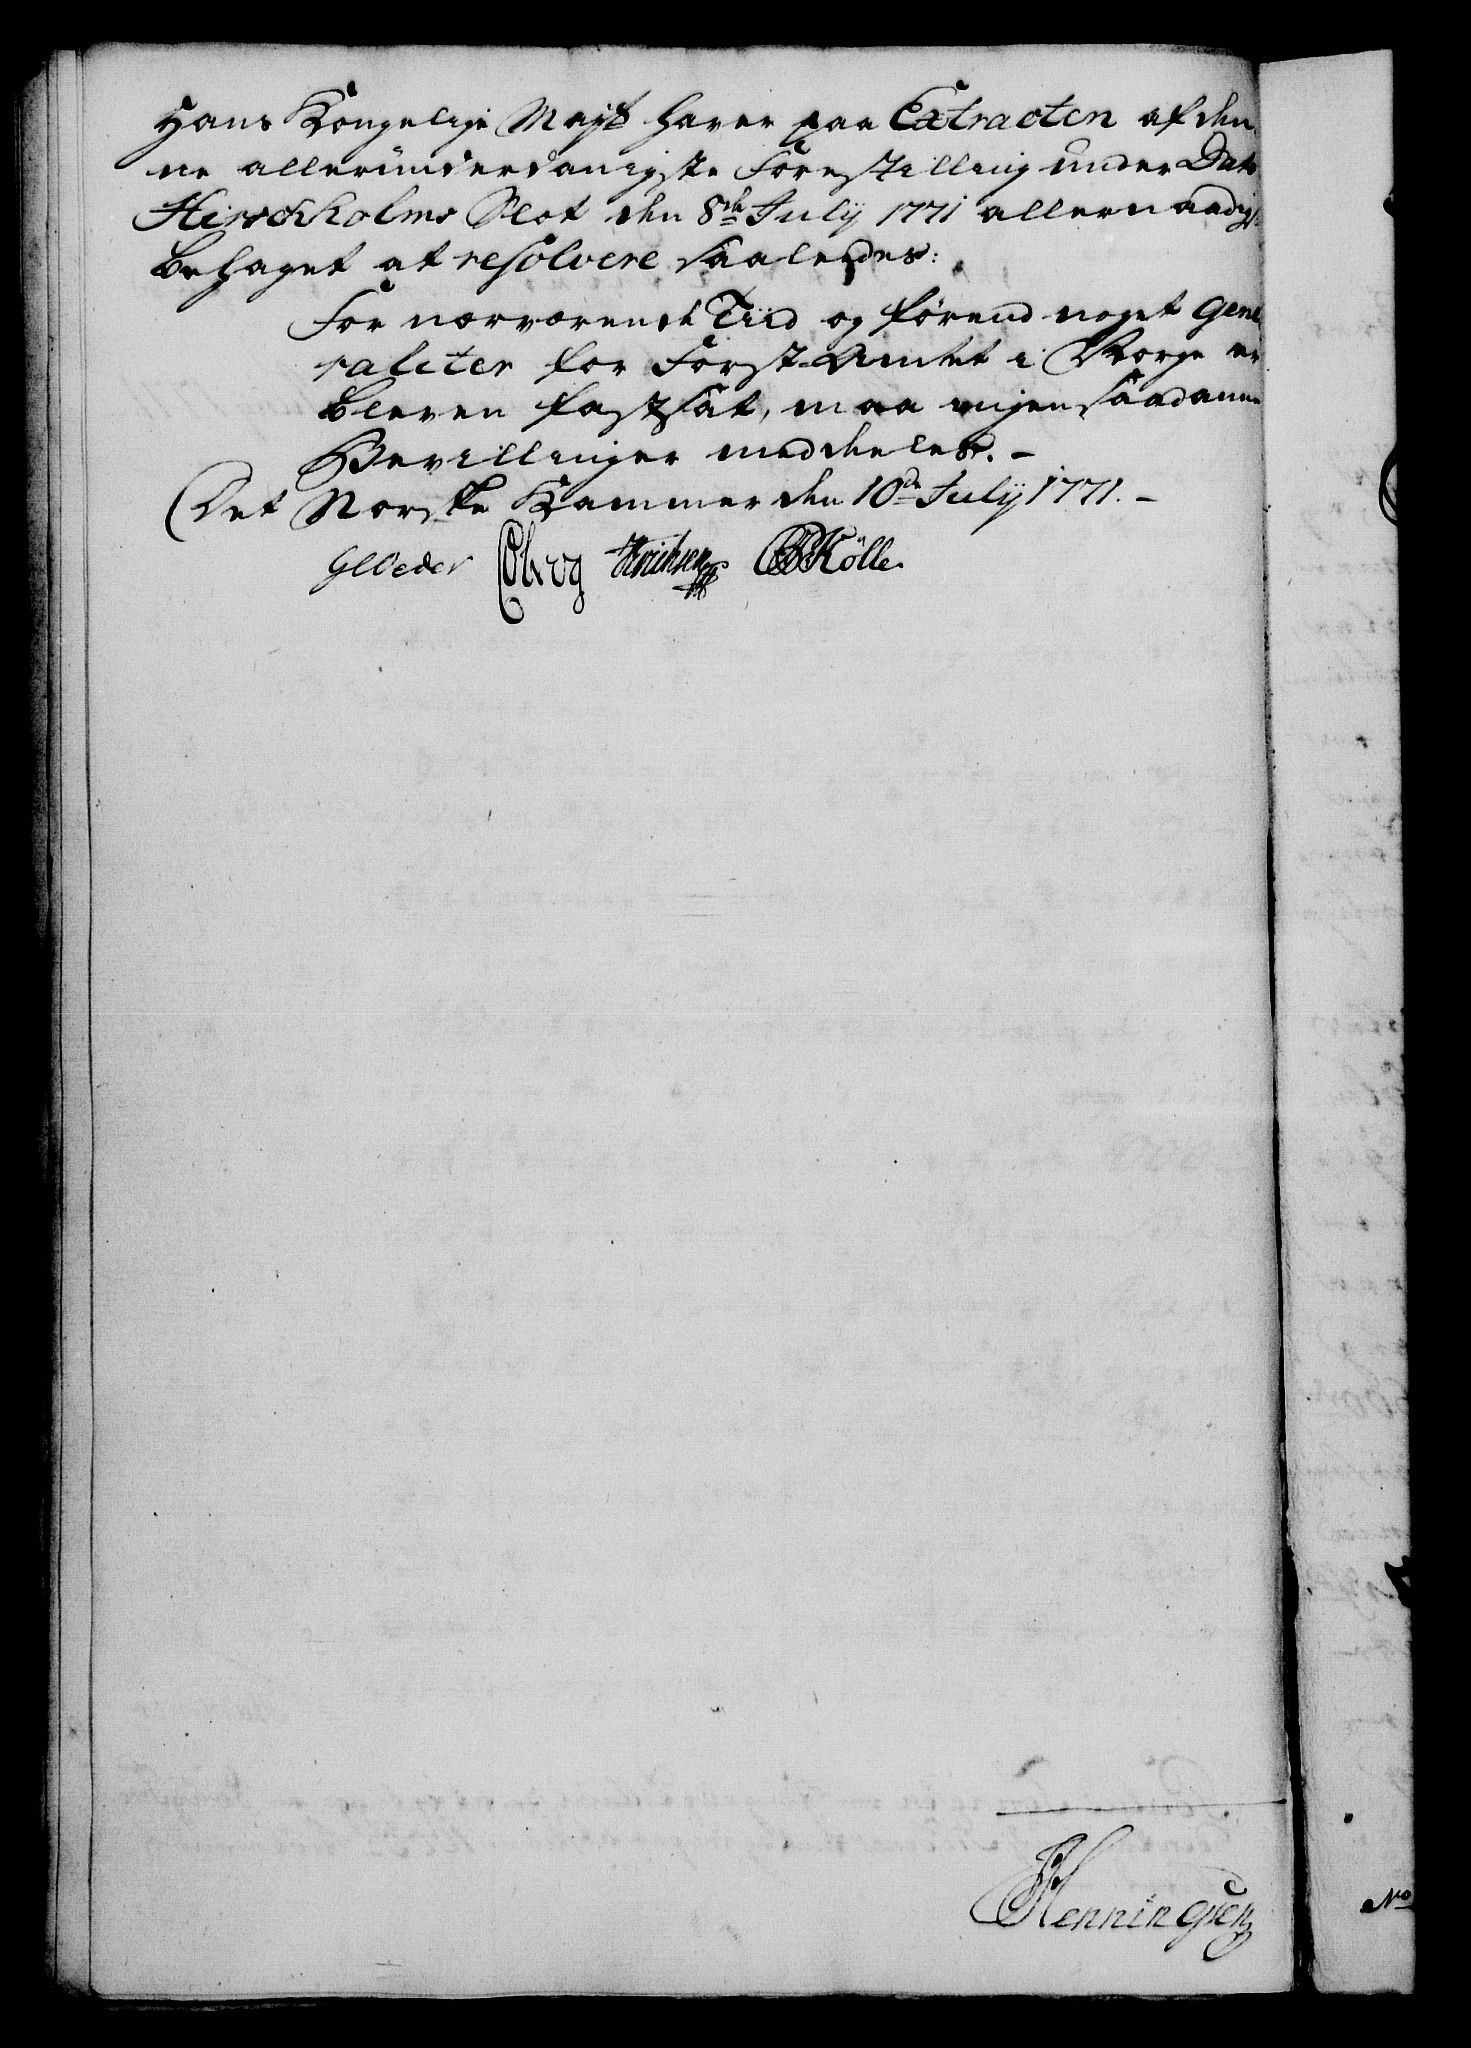 Hans Kongelige Mayt haver paa Extracten af den
ne allerunderdanigste Forestilling under Dato
Hirschholms Slot den 8de July 1771 allernaadigst
behaget at resolvere saaledes:
For nærværende Tiid og førend noget Gene
raliter for Forst-Amtet i Norge er
bleven fastsat, maa ingen saadanne
Bevillinger meddeles. -
Det Norske Kammer den 10de July 1771. -
GCOeder Hvidsteen Kölle.
JHenningsen
No